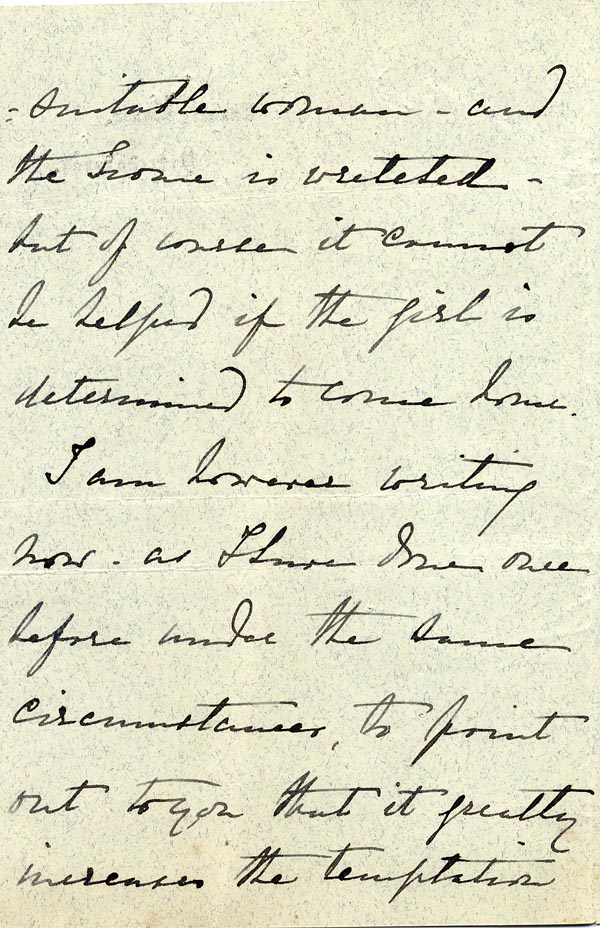 -suitable woman - and
the home is wretched -
but of course it cannot
be helped if the girl is
determined to come home.
I am however writing
now - as I have done once
before under the same
circumstances, to point
out to you that it greatly
increases the temptation